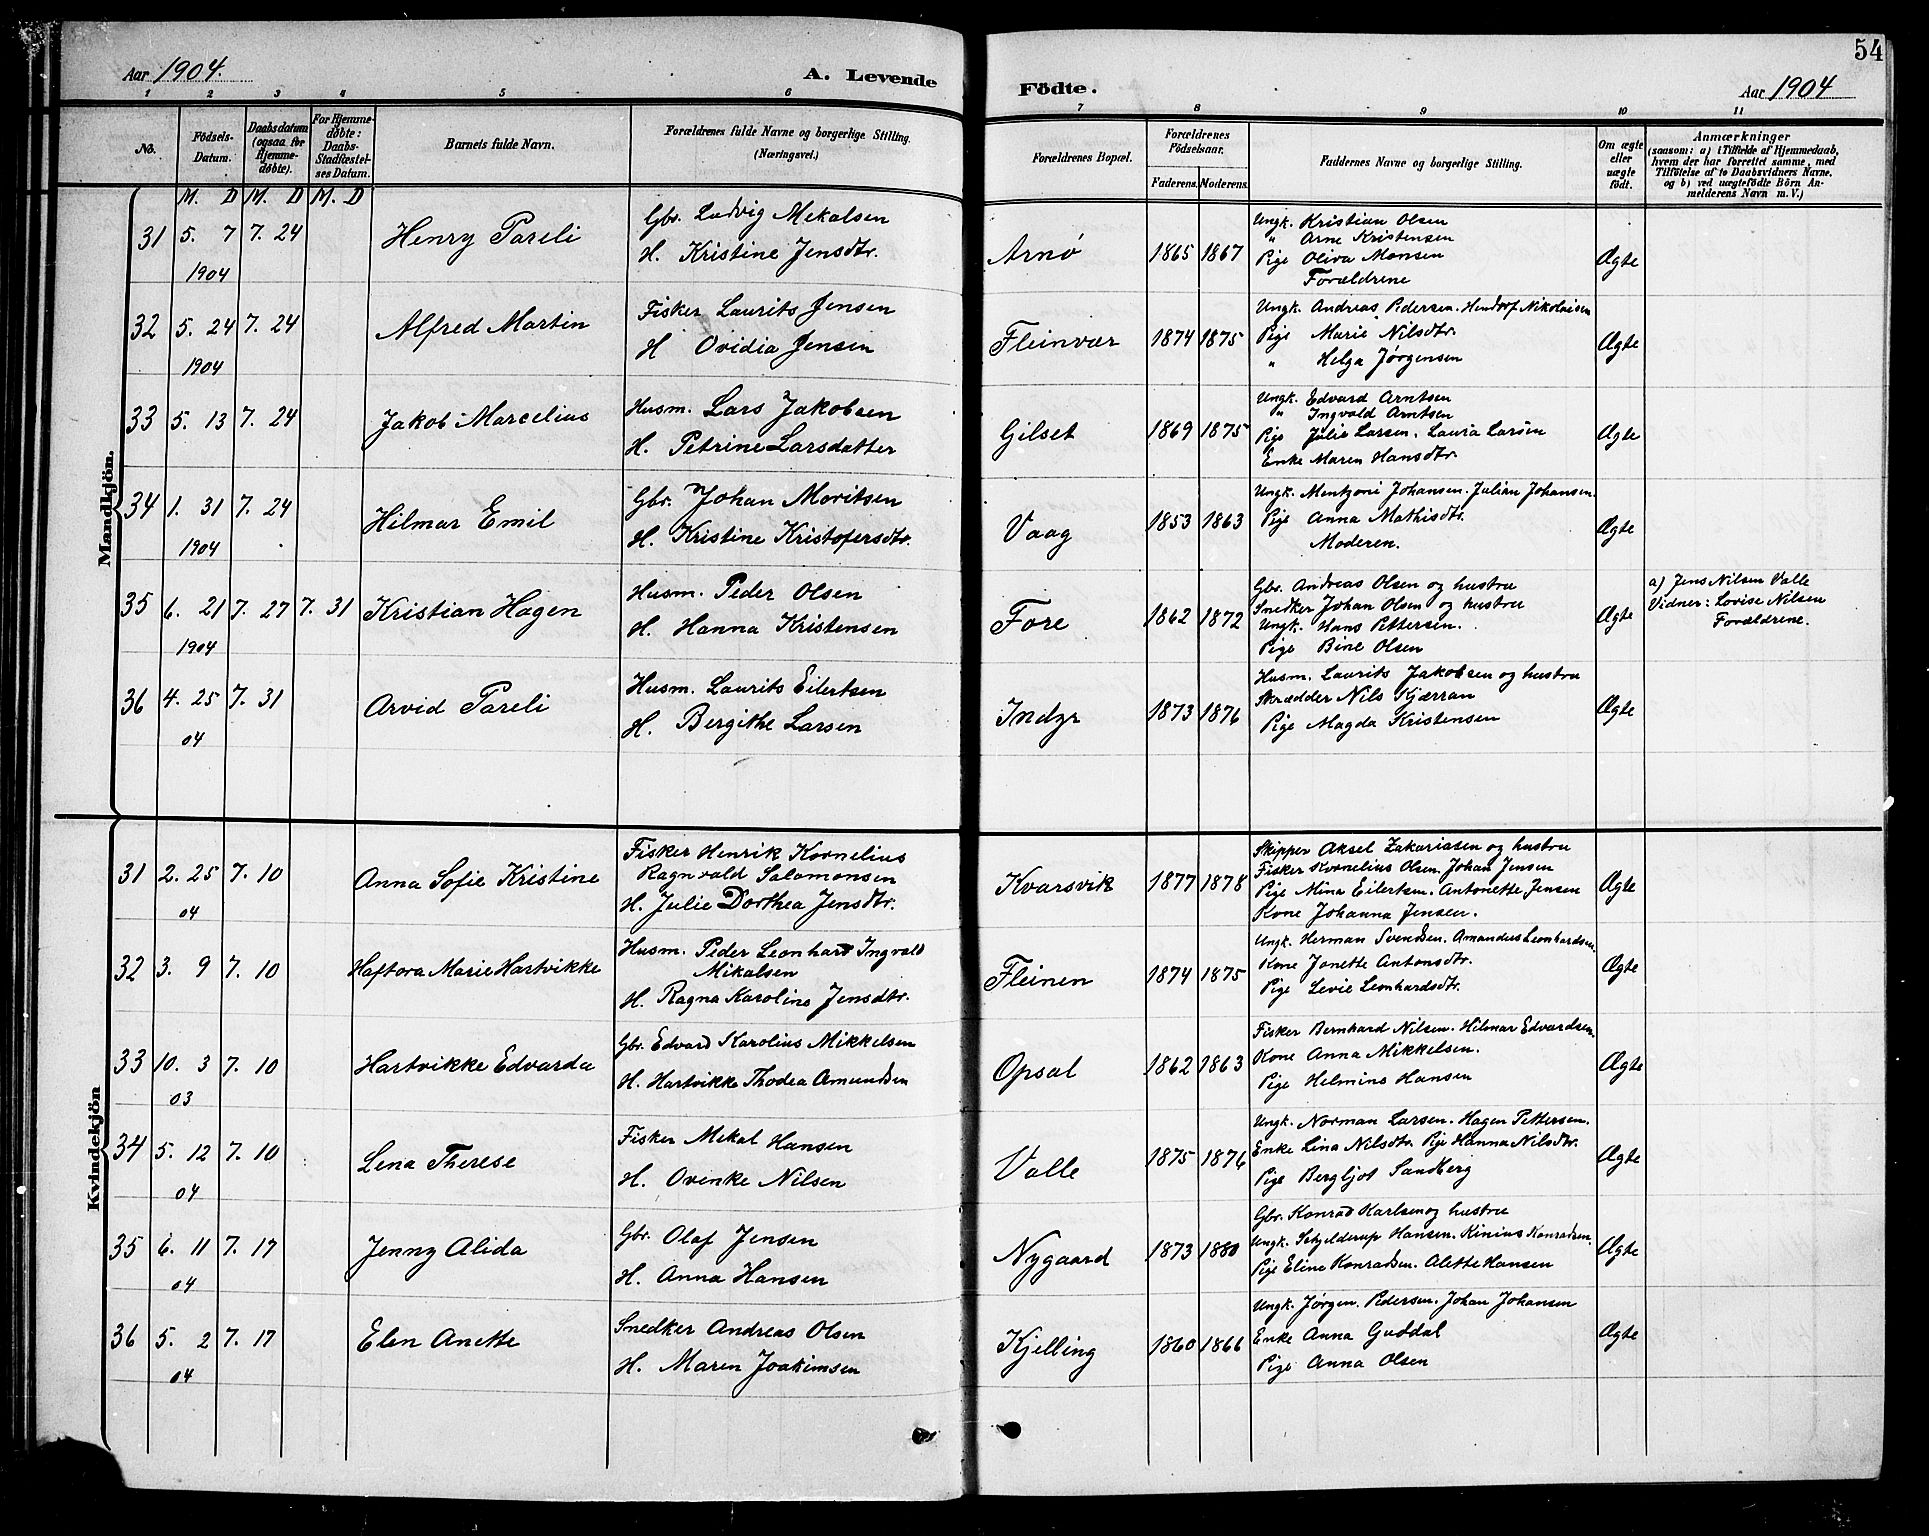 Aar 1904.
A. Levende
Födte.
Aar 1904
54
1 2 3 4 5 6 7 8 9 10 11
No.
Födsels-
Datum.
Daabsdatum
(ogsaa for
Hjemme-
døbte).
For Hjemme-
døbte:
Daabs-
Stadfæstel-
ses Datum.
Barnets fulde Navn.
Forældrenes fulde Navne og borgerlige Stilling.
(Næringsvei.)
Forældrenes Bopæl.
Forældrenes
Födselsaar.
Faderens. Moderens.
Faddernes Navne og borgerlige Stilling.
Om ægte
eller
uægte
födt.
Anmærkninger
(saasom: a) i Tilfælde af Hjemmedaab,
hvem der har forrettet samme, med
Tilföielse af to Daabsvidners Navne.
og b) ved uægtefödte Börn An-
melderens Navn m. V.)
M. D M. D M. D
Mandkjön.
31 5. 7 7. 24
1904
Henry Pareli
Gbr. Ludvig Mekalsen
H. Kristine Jensdtr.
Arnø 1865 1867
Ungk. Kristian Olsen
" Arne Kristensen
Pige Oliva Monsen
Forældrene
Ægte
32 5. 24 7. 24
1904
Alfred Martin
Fisker Laurits Jensen
H Ovidia Jensen
Fleinvær 1874 1875
Ungk. Andreas Pedersen. Hendrof Nikolaisen
Pige Marie Nilsdtr.
" Helga Jørgensen
Ægte
33 5. 13 7. 24
Jakob Marcelius
Husm. Lars Jakobsen
H. Petrine Larsdatter
Gilset 1869 1875
Ungk. Edvard Arntsen
" Ingvald Arntsen
Pige Julie Larsen. Laura Larsen
Enke Maren Hansdtr.
Ægte
34 1. 31 7. 24
1904
Hilmar Emil
Gbr. Johan Moritsen
H. Kristine Kristofersdtr.
Vaag 1853 1863
Ungk. Mentzoni Johansen. Julian Johansen.
Pige Anna Mathisdtr.
Moderen.
Ægte
35 6. 21 7. 27 7. 31
1904
Kristian Hagen
Husm. Peder Olsen
H. Hanna Kristensen
Fore 1862 1872
Gbr. Andreas Olsen og hustru
Snedker Johan Olsen og hustru
Ungk. Hans Pettersen.
Pige Bine Olsen
Ægte
a) Jens Nilsen Valle
Vidner: Lovise Nilsen
Forældrene.
36 4. 25 7. 31
04
Arvid Pareli
Husm. Laurits Eilertsen
H. Bergithe Larsen
Indyr 1873 1876
Husm. Laurits Jakobsen og hustru
Skrædder Nils Kjærran
Pige Magda Kristensen
Ægte
Kvindekjön
31 2. 25 7. 10
04
Anna Sofie Kristine
Fisker Henrik Kornelius
Ragnvald Salamonsen
H. Julie Dorthea Jensdtr.
Kvarsvik 1877 1878
Skipper Aksel Zakariasen og hustru
Fisker Kornelius Olsen. Johan Jensen
Pige Mina Eilertsen. Antonette Jensen
Kone Johanna Jensen.
Ægte
32 3. 9 7. 10
Haftora Marie Hartvikke
Husm. Peder Leonhard Ingvald
Mikalsen
H. Ragna Karoline Jensdtr.
Fleinen 1874 1875
Ungk. Herman Svendsen. Amandus Leonhardsen.
Kone Janette Antonsdtr.
Pige Levie Leonhardsdtr.
Ægte
33 10. 3 7. 10
03
Hartvikke Edvarda
Gbr. Edvard Karolius Mikkelsen
H. Hartvikke Thodea Amundsen
Opsal 1862 1863
Fisker Bernhard Nilsen. Hilmar Edvardsen.
Kone Anna Mikkelsen.
Pige Helmine Hansen
Ægte
34 5. 12 7. 10
04
Lena Therese
Fisker Mekal Hansen
H. Ovinke Nilsen
Valle 1875 1876
Ungk. Norman Larsen. Hagen Pettersen.
Enke Lina Nilsdtr. Pige Hanna Nilsdtr.
Pige Bergljot Sandberg
Ægte
35 6. 11 7. 17
04
Jenny Alida
Gbr. Olaf Jensen
H. Anna Hansen
Nygaard 1873 1880
Gbr. Konrad Karlsen og hustru
Ungk. Schjelderup Hansen. Kinius Konradsen.
Pige Eline Konradsen. Alette Hansen
Ægte
36 5. 2 7. 17
04
Elen Anette
Snedker Andreas Olsen
H. Maren Joakimsen
Kjelling 1860 1866
Ungk. Jørgen. Pedersen. Johan Johansen
Enke Anna Guddal
Pige Anna Olsen
Ægte